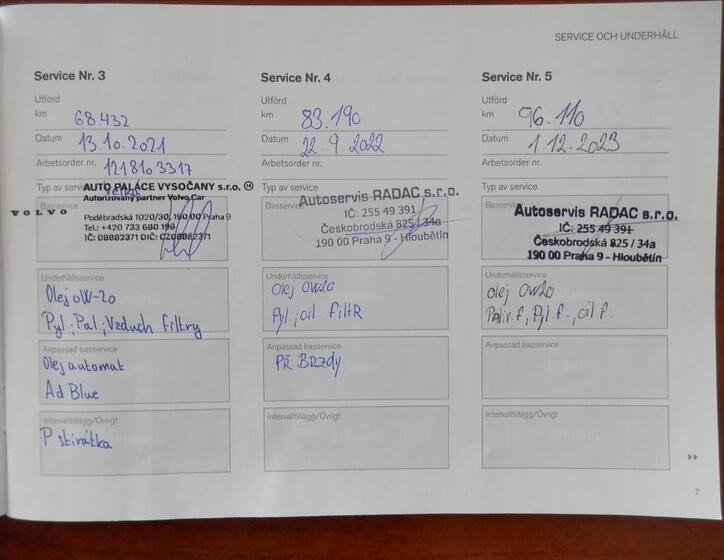 SERVICE OCH UNDERHÅLL
Service Nr. 3
Utförd
km 68.432
Datum 13.10.2021
Arbetsorder nr. 1218103317
Typ av service velká
Basservice
VOLVO
AUTO PALÁCE VYSOČANY s.r.o. 14
Autorizovaný partner Volvo Car
Poděbradská 1020/30, 190 00 Praha 9
Tel.: +420 733 680 196
IČ: 08882371 DIČ: CZ08882371
Underhållsservice
Olej oW-20
Pyl; Pal; Vzduch filtry
Anpassad basservice
Olej automat
Ad Blue
Intervalltillägg/Övrigt
P stirátka
Service Nr. 4
Utförd
km 83.190
Datum 22.9.2022
Arbetsorder nr.
Typ av service
Basservice
Autoservis RADAC s.r.o.
IČ: 255 49 391
Českobrodská 825 / 34a
190 00 Praha 9 - Hloubětín
Underhållsservice
Olej OW20
Pyl.; oil. FiltR
Anpassad basservice
Př Brzdy
Intervalltillägg/Övrigt
Service Nr. 5
Utförd
km 96.110
Datum 1.12.2023
Arbetsorder nr.
Typ av service
Basservice
Autoservis RADAC s.r.o.
IČ: 255 49 391
Českobrodská 825 / 34a
190 00 Praha 9 - Hloubětín
Underhållsservice
olej OW20
Paliv. f, Pyl f., oil f.
Anpassad basservice
Intervalltillägg/Övrigt
7